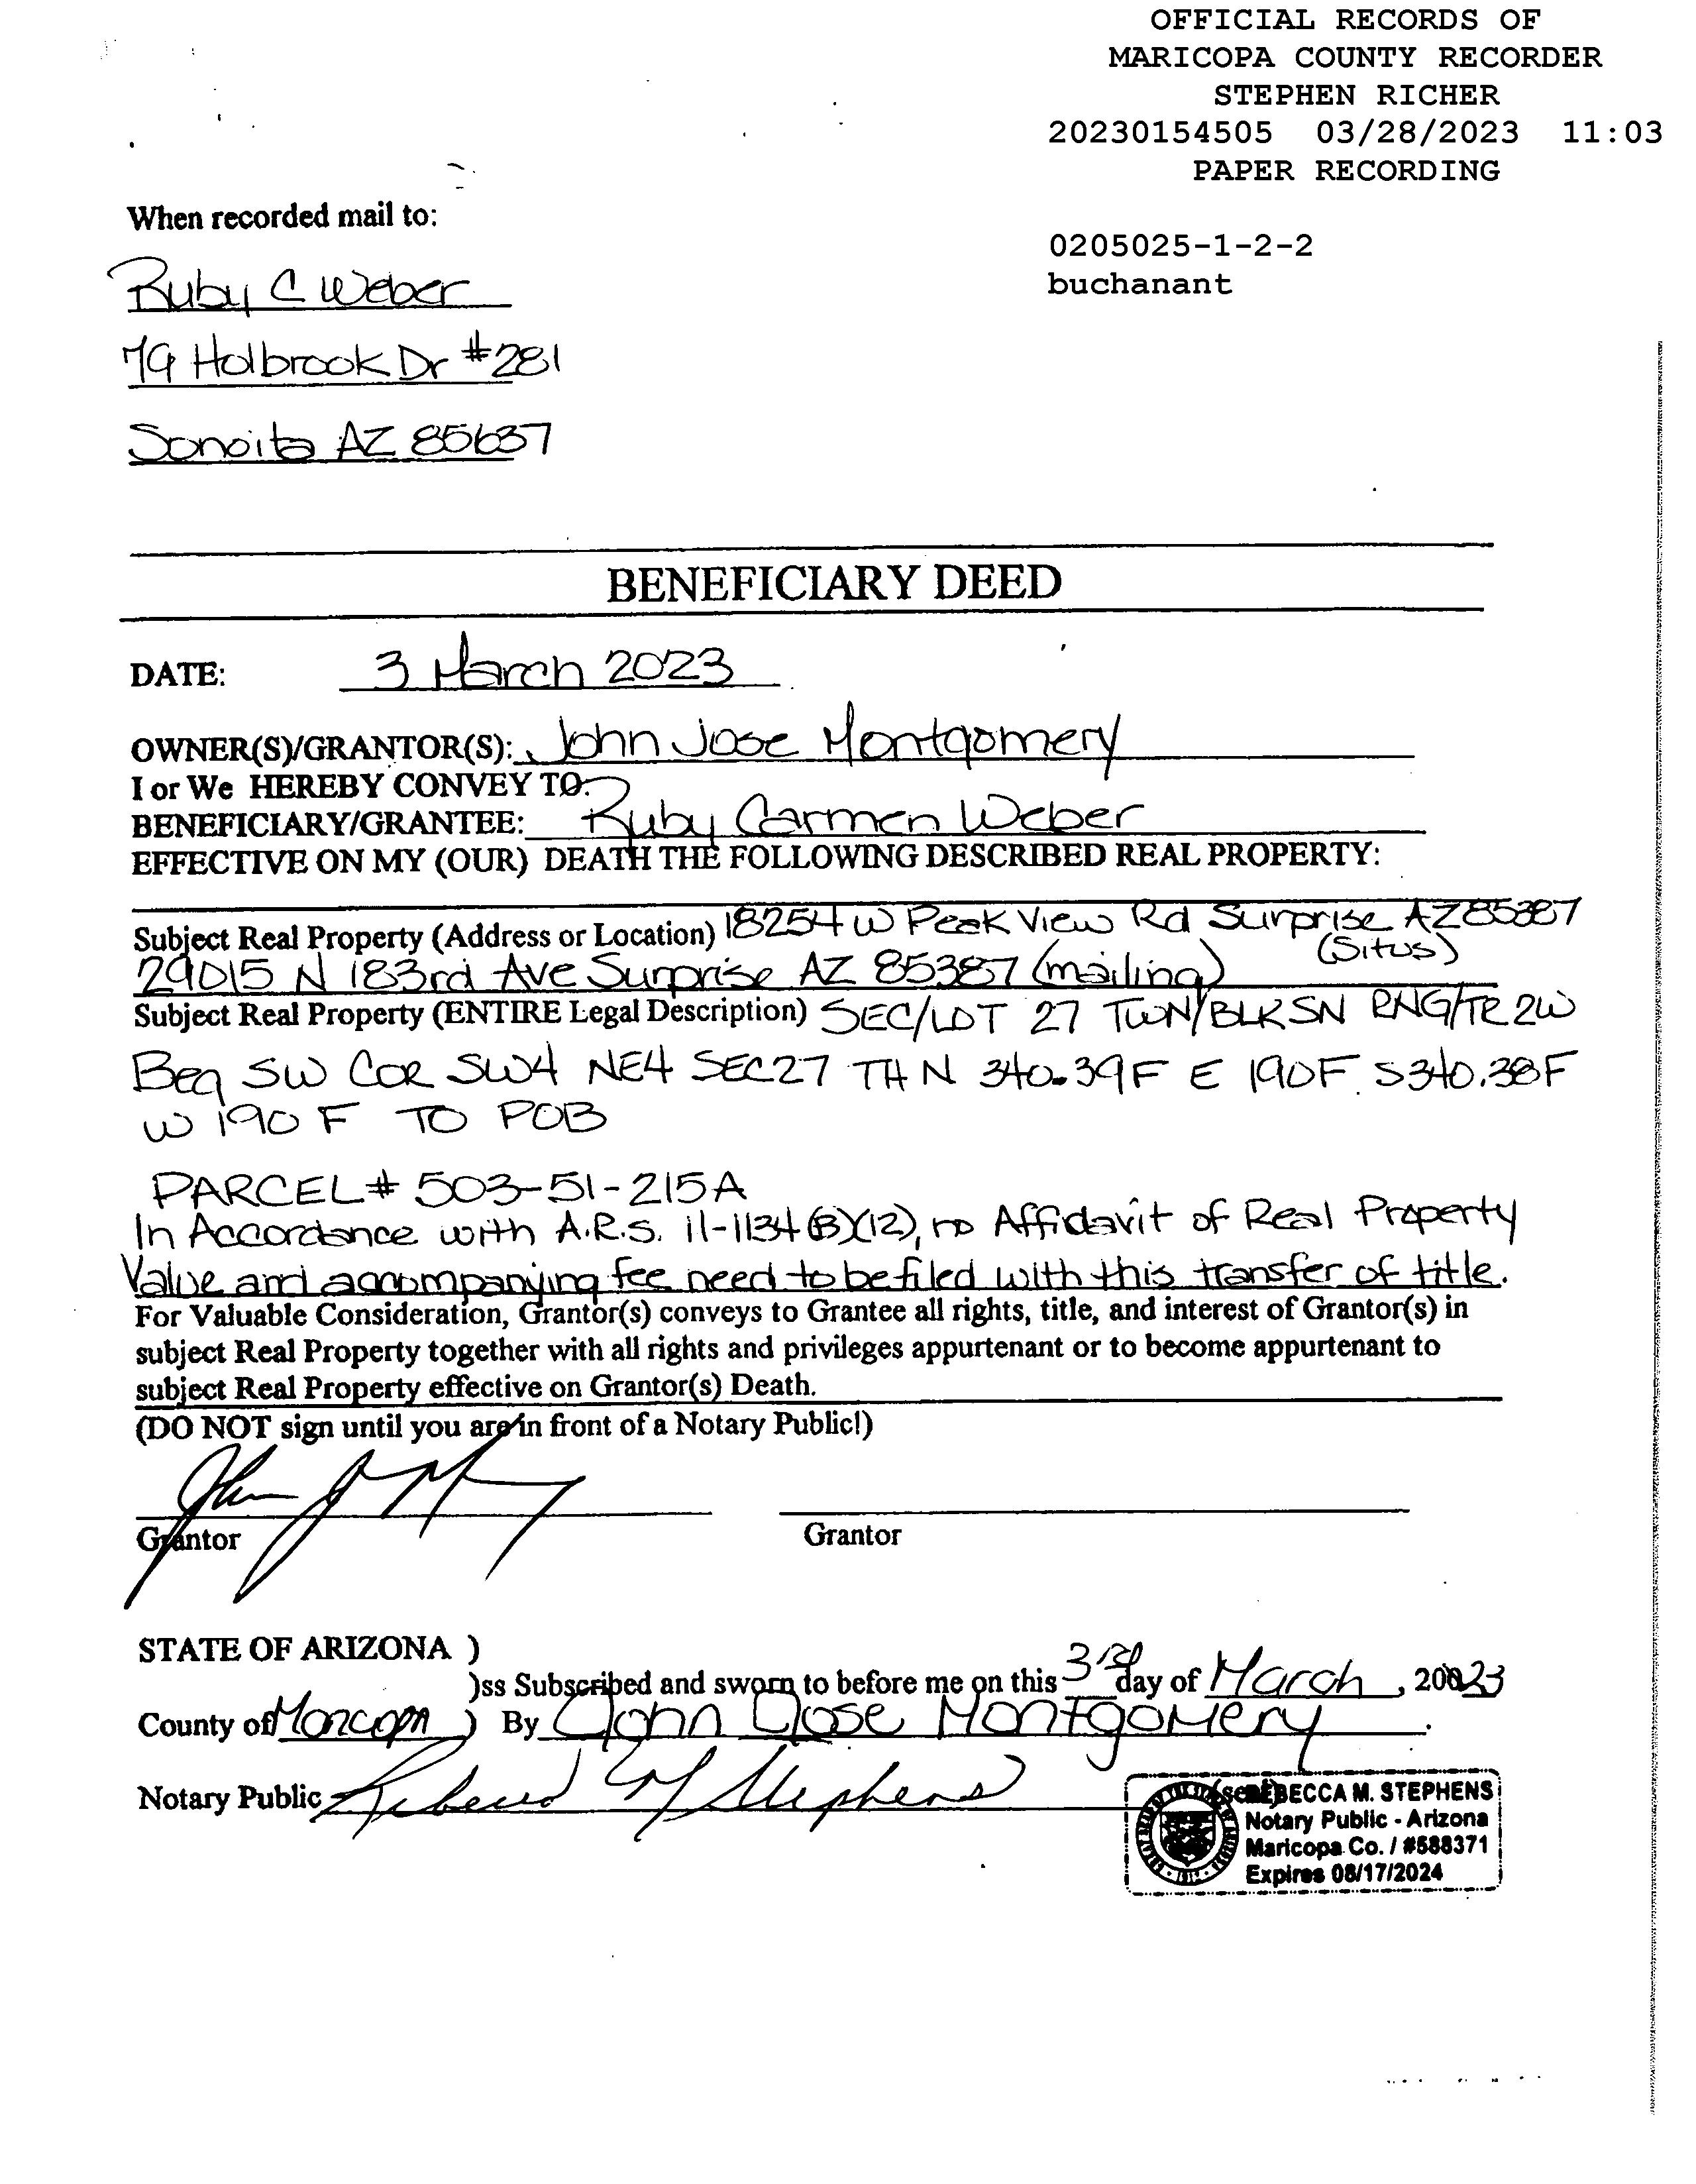 OFFICIAL RECORDS OF
MARICOPA COUNTY RECORDER
STEPHEN RICHER
20230154505 03/28/2023 11:03
PAPER RECORDING
0205025-1-2-2
buchanant
When recorded mail to:
Ruby C Weber
79 Holbrook Dr #281
Sonoita AZ 85637
BENEFICIARY DEED
DATE: 3 March 2023
OWNER(S)/GRANTOR(S): John Jose Montgomery
I or We HEREBY CONVEY TO:
BENEFICIARY/GRANTEE: Ruby Carmen Weber
EFFECTIVE ON MY (OUR) DEATH THE FOLLOWING DESCRIBED REAL PROPERTY:
Subject Real Property (Address or Location) 18254 W Peak View Rd Surprise AZ 85387
(Situs)
29015 N 183rd Ave Surprise AZ 85387 (mailing)
Subject Real Property (ENTIRE Legal Description) SEC/LOT 27 TWN/BLK 5N RNG/TR 2W
Beg SW COR SW4 NE4 SEC 27 TH N 340.39F E 190F S 340.38F
W 190 F TO POB
PARCEL # 503-51-215A
In Accordance with A.R.S. 11-1134 (B)(12), no Affidavit of Real Property
Value and accompanying fee need to be filed with this transfer of title.
For Valuable Consideration, Grantor(s) conveys to Grantee all rights, title, and interest of Grantor(s) in
subject Real Property together with all rights and privileges appurtenant or to become appurtenant to
subject Real Property effective on Grantor(s) Death.
(DO NOT sign until you are in front of a Notary Public!)
Grantor Grantor
STATE OF ARIZONA )
)ss Subscribed and sworn to before me on this 3rd day of March, 2023
County of Maricopa ) By John Jose Montgomery.
Notary Public Rebecca M Stephens
(seal)
REBECCA M. STEPHENS
Notary Public - Arizona
Maricopa Co. / #588371
Expires 08/17/2024